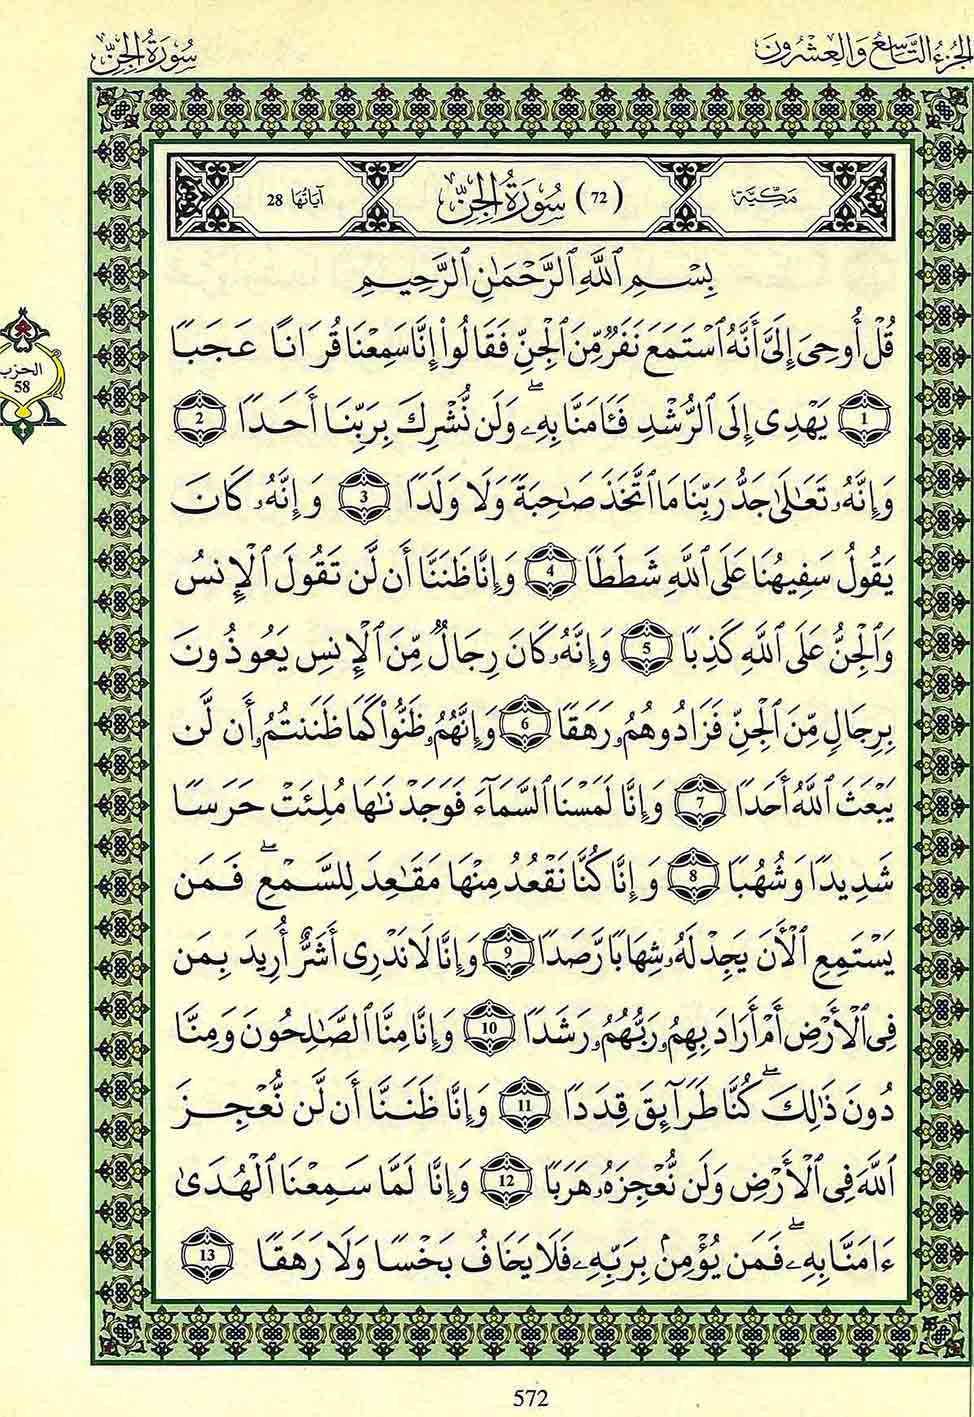 الجزء التاسع والعشرون
سورة الجن
مكية
(72) سورة الجن
آياتها 28
بِسْمِ ٱللَّهِ ٱلرَّحْمَٰنِ ٱلرَّحِيمِ
قُلْ أُوحِىَ إِلَىَّ أَنَّهُ ٱسْتَمَعَ نَفَرٌ مِّنَ ٱلْجِنِّ فَقَالُوا۟ إِنَّا سَمِعْنَا قُرَانًا عَجَبًا
1 يَهْدِى إِلَى ٱلرُّشْدِ فَـَٔامَنَّا بِهِۦ ۖ وَلَن نُّشْرِكَ بِرَبِّنَا أَحَدًا 2
وَإِنَّهُۥ تَعَٰلَىٰ جَدُّ رَبِّنَا مَا ٱتَّخَذَ صَٰحِبَةً وَلَا وَلَدًا 3 وَإِنَّهُۥ كَانَ
يَقُولُ سَفِيهُنَا عَلَى ٱللَّهِ شَطَطًا 4 وَإِنَّا ظَنَنَّا أَن لَّن تَقُولَ ٱلْإِنسُ
وَٱلْجِنُّ عَلَى ٱللَّهِ كَذِبًا 5 وَإِنَّهُۥ كَانَ رِجَالٌ مِّنَ ٱلْإِنسِ يَعُوذُونَ
بِرِجَالٍ مِّنَ ٱلْجِنِّ فَزَادُوهُمُۥ رَهَقًا 6 وَإِنَّهُمُۥ ظَنُّوا۟ كَمَا ظَنَنتُمُۥ أَن لَّن
يَبْعَثَ ٱللَّهُ أَحَدًا 7 وَإِنَّا لَمَسْنَا ٱلسَّمَآءَ فَوَجَدْنَٰهَا مُلِئَتْ حَرَسًا
شَدِيدًا وَشُهُبًا 8 وَإِنَّا كُنَّا نَقْعُدُ مِنْهَا مَقَٰعِدَ لِلسَّمْعِ ۖ فَمَن
يَسْتَمِعِ ٱلْأَنَ يَجِدْ لَهُۥ شِهَابًا رَّصَدًا 9 وَإِنَّا لَا نَدْرِى أَشَرٌّ أُرِيدَ بِمَن
فِى ٱلْأَرْضِ أَمْ أَرَادَ بِهِمُۥ رَبُّهُمُۥ رَشَدًا 10 وَإِنَّا مِنَّا ٱلصَّٰلِحُونَ وَمِنَّا
دُونَ ذَٰلِكَ ۖ كُنَّا طَرَآئِقَ قِدَدًا 11 وَإِنَّا ظَنَنَّا أَن لَّن نُّعْجِزَ
ٱللَّهَ فِى ٱلْأَرْضِ وَلَن نُّعْجِزَهُۥ هَرَبًا 12 وَإِنَّا لَمَّا سَمِعْنَا ٱلْهُدَىٰ
ءَامَنَّا بِهِۦ ۖ فَمَن يُؤْمِنۢ بِرَبِّهِۦ فَلَا يَخَافُ بَخْسًا وَلَا رَهَقًا 13
الحزب
58
572